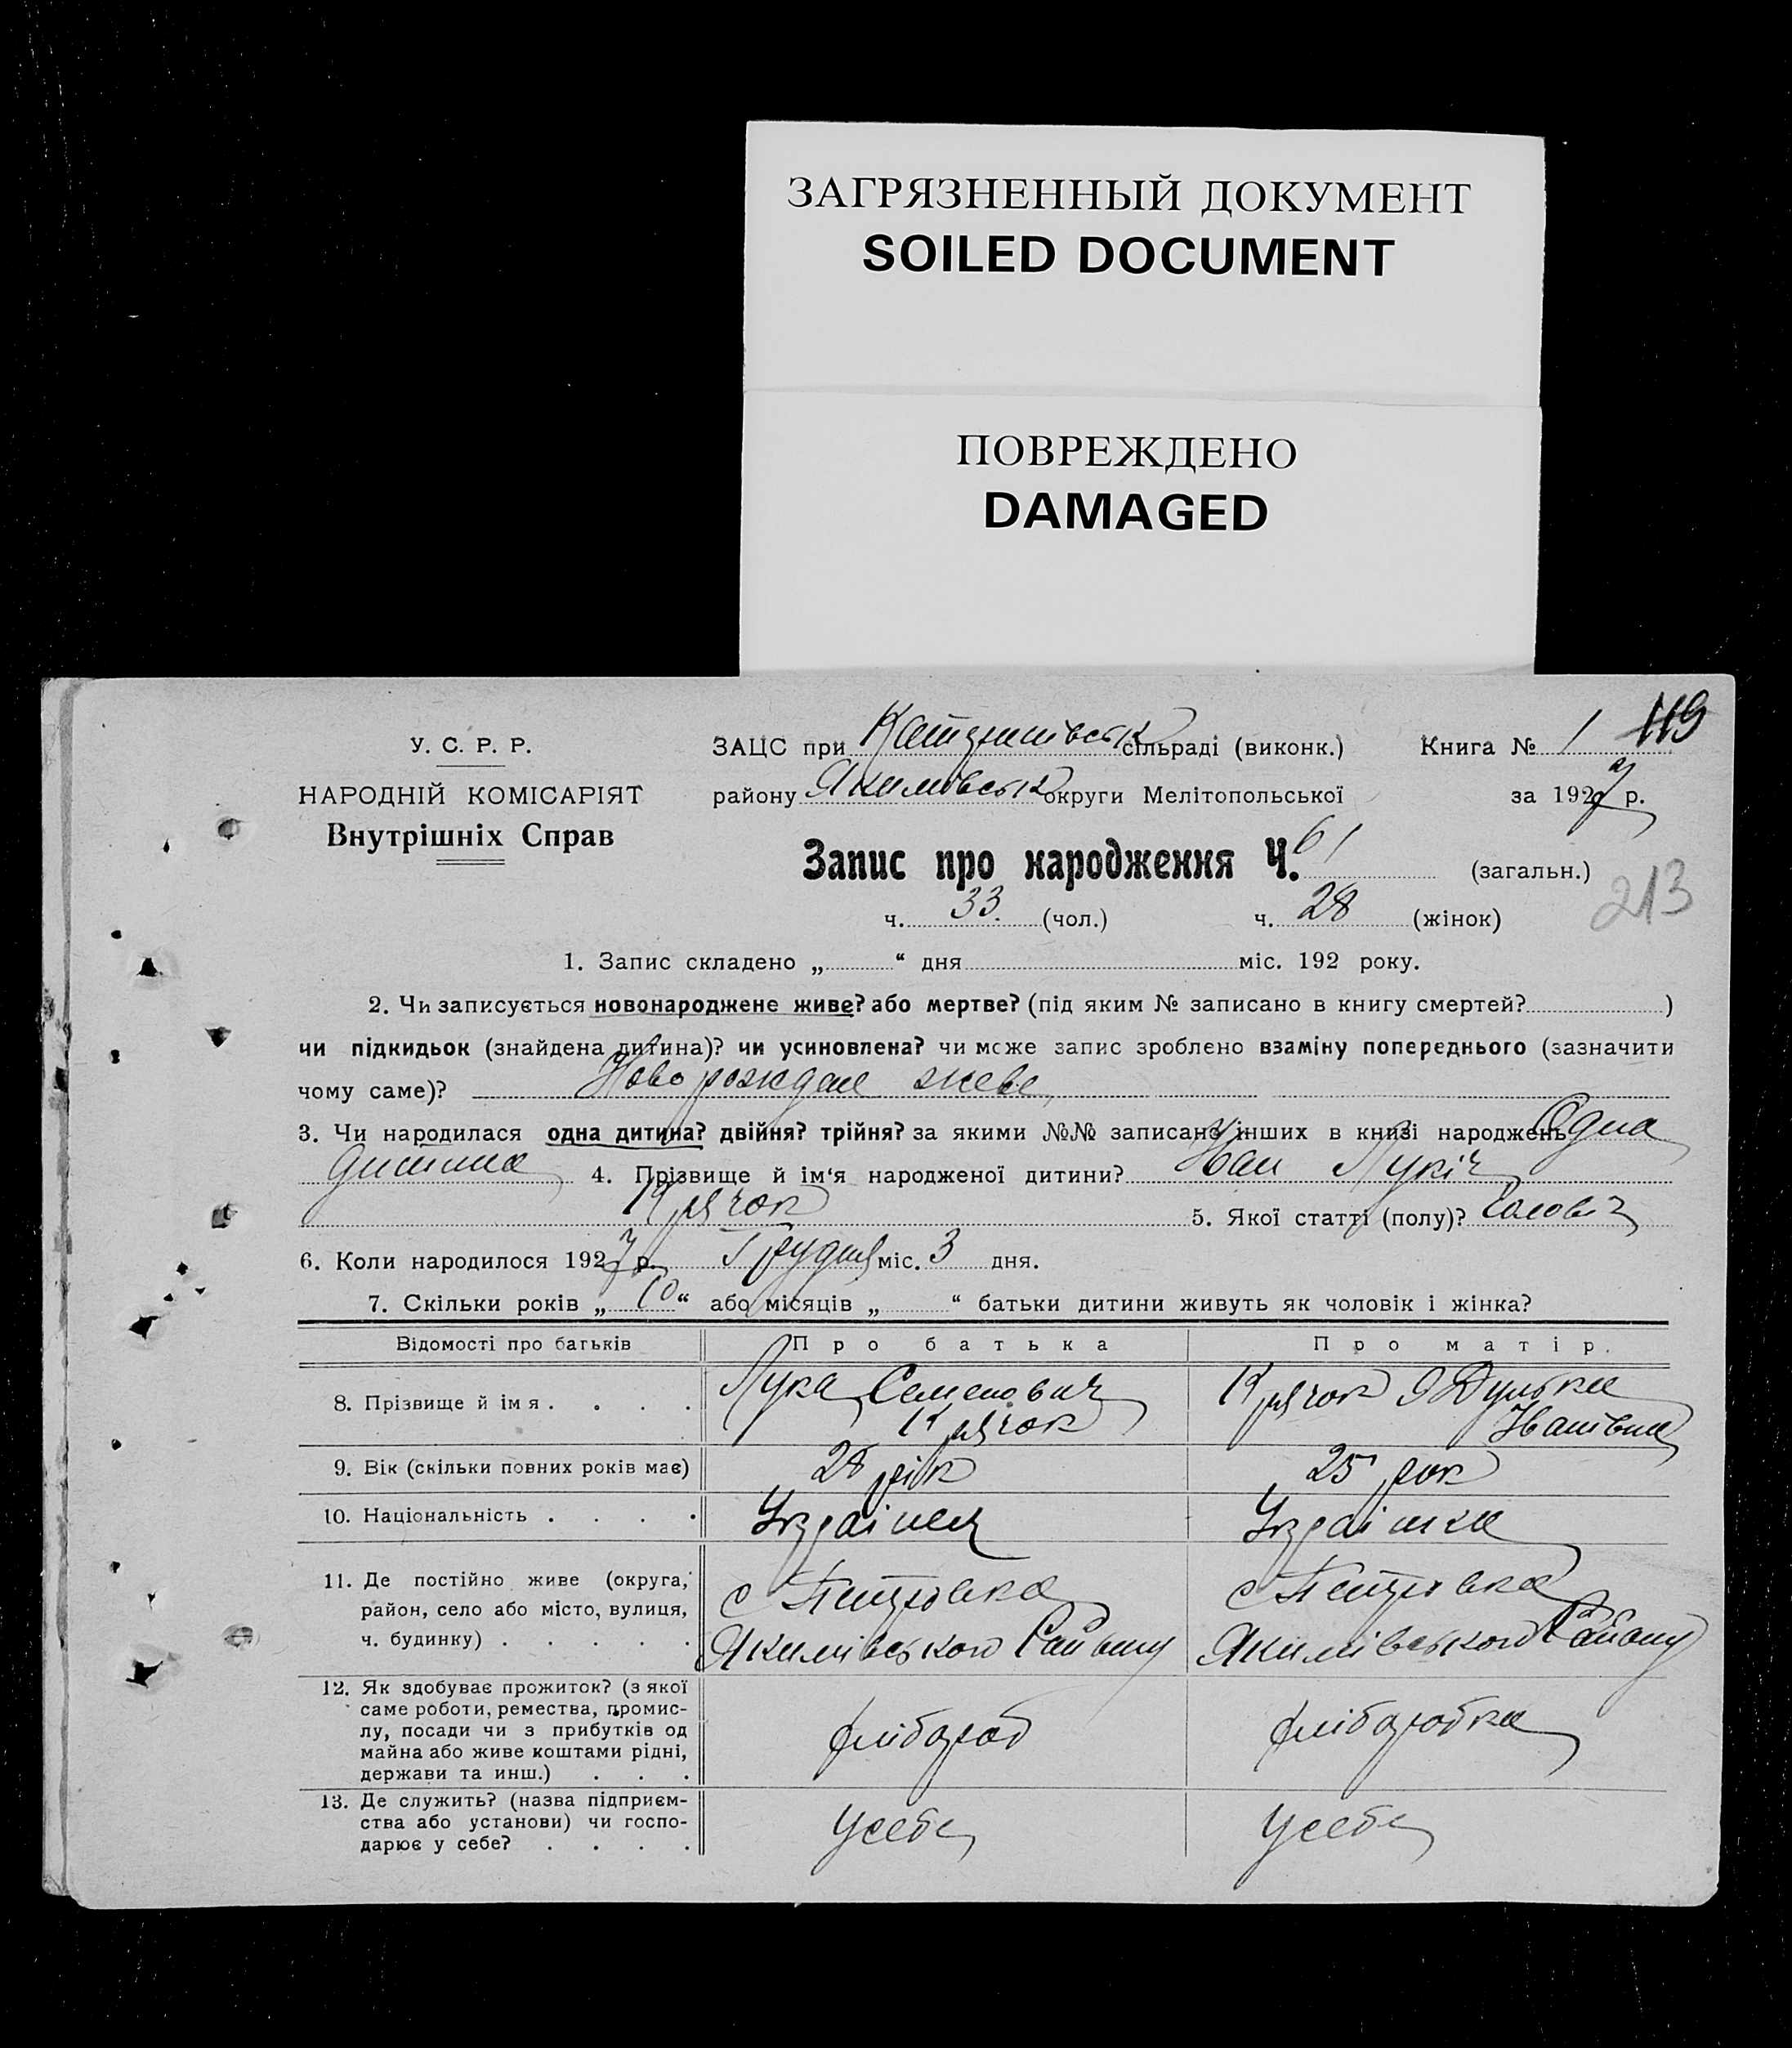 ЗАГРЯЗНЕННЫЙ ДОКУМЕНТ
SOILED DOCUMENT
ПОВРЕЖДЕНО
DAMAGED
119
У. С. Р. Р.
НАРОДНІЙ КОМІСАРІЯТ
Внутрішніх Справ
ЗАЦС при сільраді (виконк.) Книга № 1
району Якимівськ округи Мелітопольської за 1927 р.
Запис про народження Ч. 61 (загальн.)
213
ч. 33 (чол.) ч. 28 (жінок)
1. Запис складено „ “ дня міс. 192 року.
2. Чи записується новонароджене живе? або мертве? (під яким № записано в книгу смертей? )
чи підкидьок (знайдена дитина)? чи усиновлена? чи може запис зроблено взаміну попереднього (зазначити
чому саме)? живе
3. Чи народилася одна дитина? двійня? трійня? за якими №№ записано інших в книзі народжень Одна
дитина 4. Прізвище й ім‘я народженої дитини? Іван Лукіч
Крячок 5. Якої статті (полу)? Чолович
6. Коли народилося 1927 р. Грудня міс. 3 дня.
7. Скільки років „ 10 “ або місяців „ “ батьки дитини живуть як чоловік і жінка?
Відомості про батьків Про батька Про матір.
8. Прізвище й ім я . . . . Лука Семенович Крячок
Крячок Іванівна
9. Вік (скільки повних років має) 28 рік 25 рок
10. Національність . . . . Українец Українка
11. Де постійно живе (округа, с Петровка с Петровка
район, село або місто, вулиця,
ч. будинку) . . . . . Якимівського Району Якимівського Району
12. Як здобуває прожиток? (з якої
саме роботи, ремества, промис-
лу, посади чи з прибутків од хлібороб хліборобка
майна або живе коштами рідні,
держави та инш.) . . .
13. Де служить? (назва підприєм-
ства або установи) чи госпо- У себе У себе
дарює у себе? . . . .